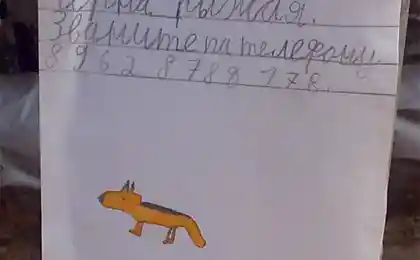 рыжая.
Званите на телефон
8 9 6 2 8 7 8 8 1 7 8.